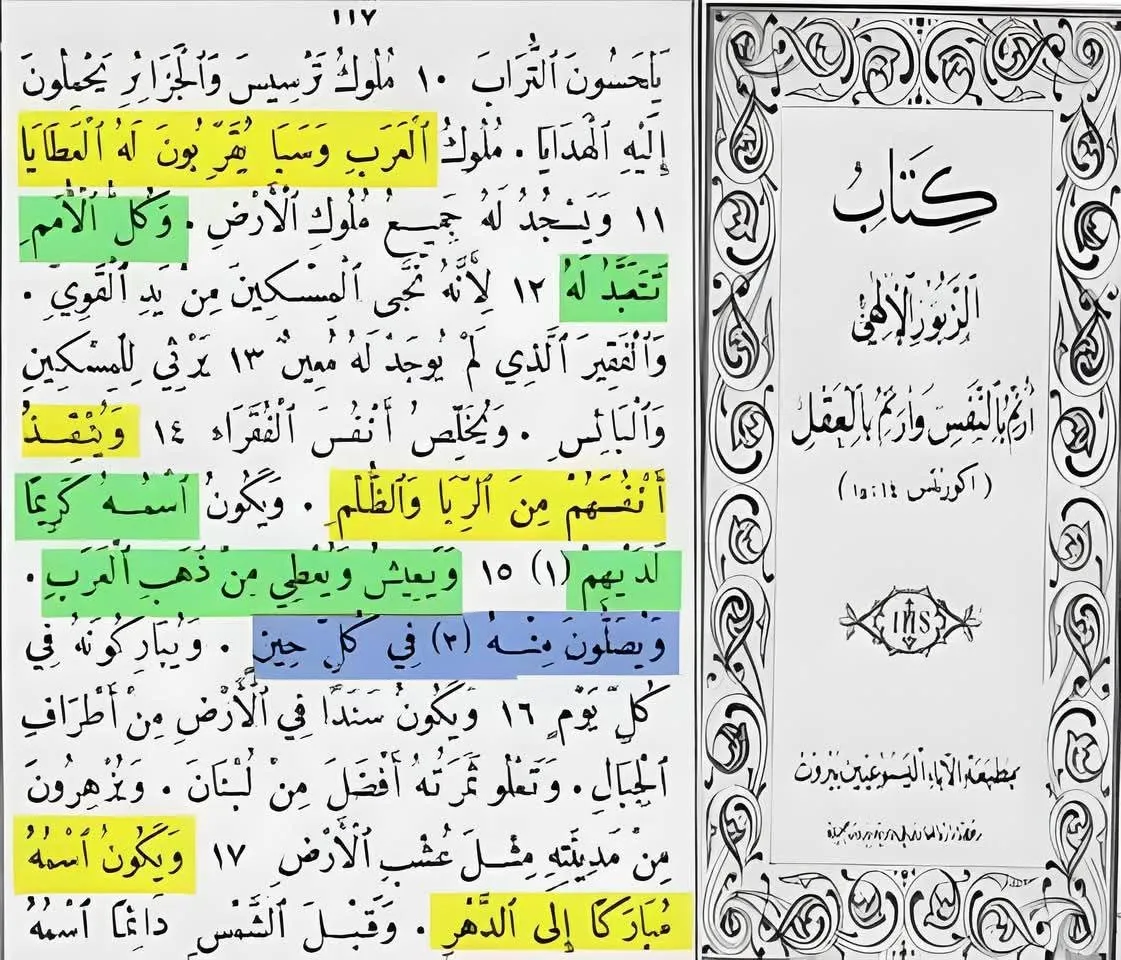 ١١٧
يَلْحَسُونَ ٱلتُّرَابَ ١٠ مُلُوكُ تَرْسِيسَ وَٱلْجَزَائِرِ يَحْمِلُونَ
إِلَيْهِ ٱلْهَدَايَا. مُلُوكُ ٱلْعَرَبِ وَسَبَا يُقَرِّبُونَ لَهُ ٱلْعَطَايَا
١١ وَيَسْجُدُ لَهُ جَمِيعُ مُلُوكِ ٱلْأَرْضِ. وَكُلُّ ٱلْأُمَمِ
تَتَعَبَّدُ لَهُ ١٢ لِأَنَّهُ نَجَّى ٱلْمِسْكِينَ مِنْ يَدِ ٱلْقَوِيِّ.
وَٱلْفَقِيرَ ٱلَّذِي لَمْ يُوجَدْ لَهُ مُعِينٌ ١٣ يَرْثِي لِلْمِسْكِينِ
وَٱلْبَائِسِ. وَيُخَلِّصُ أَنْفُسَ ٱلْفُقَرَاءِ ١٤ وَيُنْقِذُ
أَنْفُسَهُمْ مِنَ ٱلرِّبَا وَٱلظُّلْمِ. وَيَكُونُ ٱسْمُهُ كَرِيمًا
لَدَيْهِمْ (١) ١٥ وَيَعِيشُ وَيُعْطِي مِنْ ذَهَبِ ٱلْعَرَبِ.
وَيُصَلُّونَ مِنْهُ (٢) فِي كُلِّ حِينٍ. وَيُبَارِكُونَهُ فِي
كُلِّ يَوْمٍ ١٦ وَيَكُونُ سَنَدًا فِي ٱلْأَرْضِ مِنْ أَطْرَافِ
ٱلْجِبَالِ. وَتَعْلُو ثَمَرَتُهُ أَفْضَلَ مِنْ لُبْنَانَ. وَيُزْهِرُونَ
مِنْ مَدِينَتِهِ مِثْلَ عُشْبِ ٱلْأَرْضِ ١٧ وَيَكُونُ ٱسْمُهُ
مُبَارَكًا إِلَى ٱلدَّهْرِ. وَقَبْلَ ٱلشَّمْسِ دَائِمًا ٱسْمُهُ
كِتَابُ
ٱلزَّبُورِ ٱلْإِلٰهِيِّ
أُرَنِّمُ بِٱلنَّفْسِ وَأُرَنِّمُ بِٱلْعَقْلِ
(١كورنتس ١٤:١٥)
IHS
بمطبعة الآباء اليسوعيين بيروت